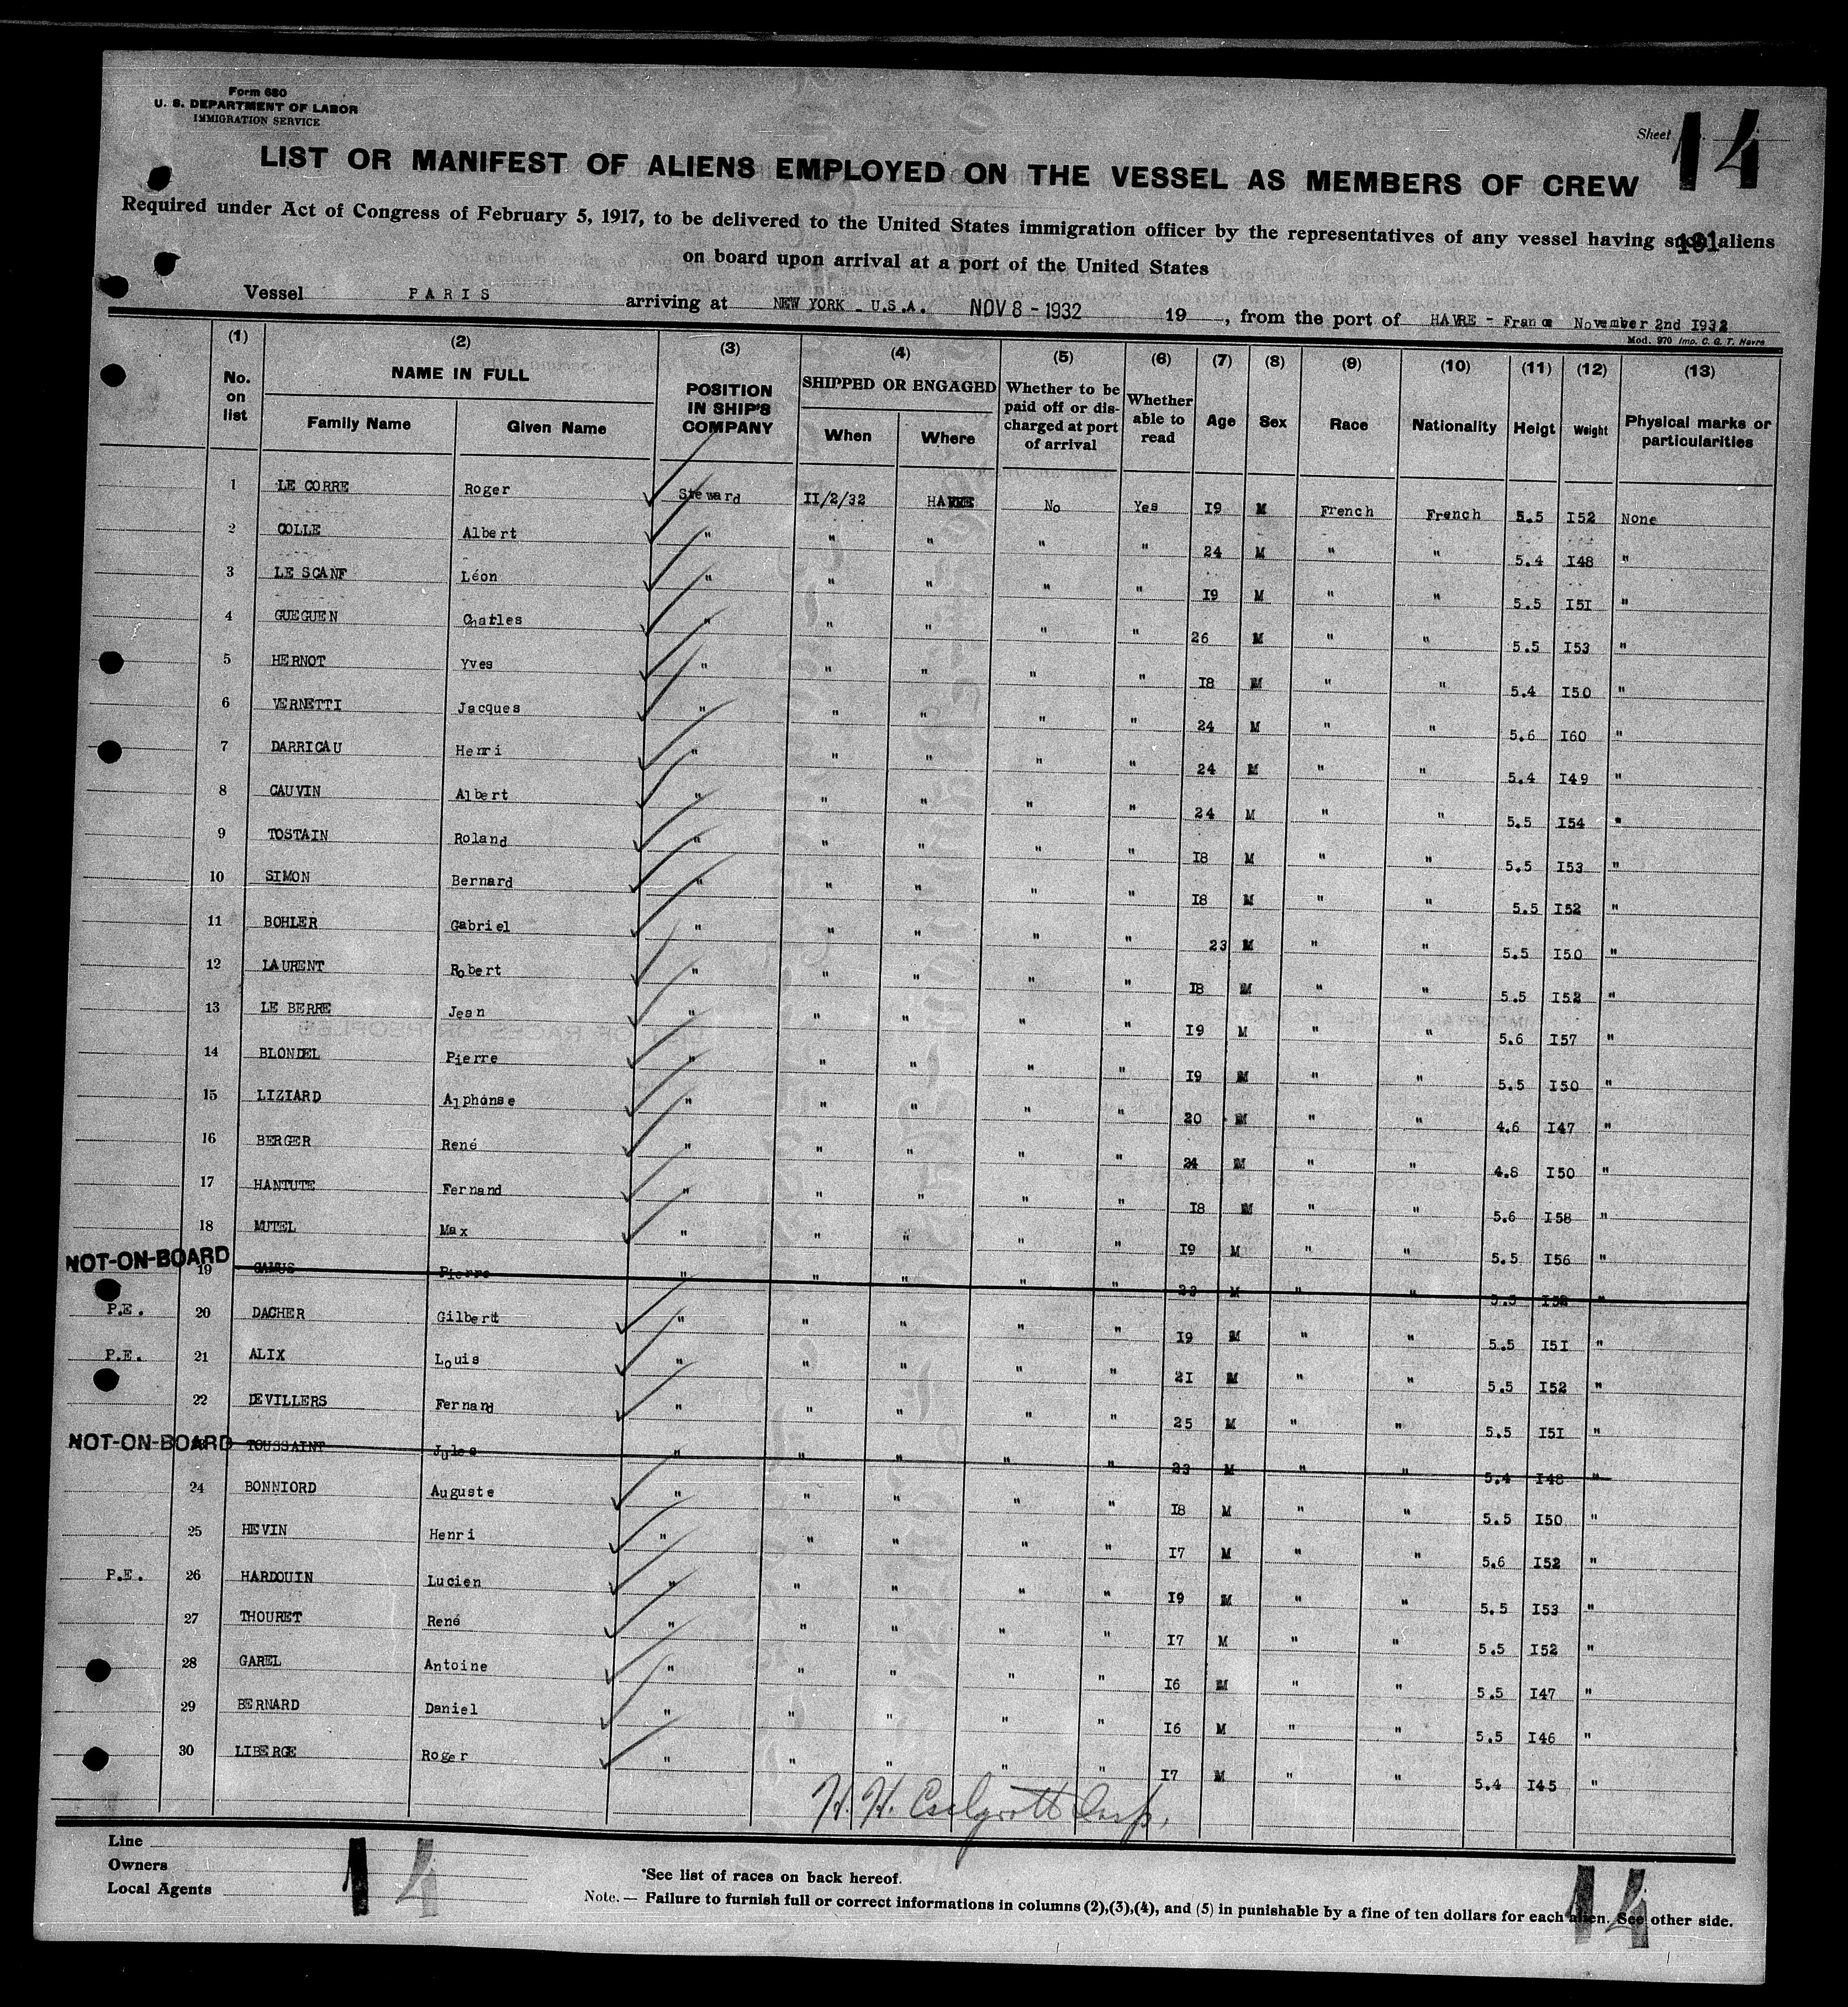 Form 680
U. S. DEPARTMENT OF LABOR
IMMIGRATION SERVICE
Sheet 14
LIST OR MANIFEST OF ALIENS EMPLOYED ON THE VESSEL AS MEMBERS OF CREW
Required under Act of Congress of February 5, 1917, to be delivered to the United States immigration officer by the representatives of any vessel having such aliens
on board upon arrival at a port of the United States
Vessel PARIS arriving at NEW YORK _ U.S.A. NOV 8 - 1932 19 , from the port of HAVRE - France November 2nd I932
Mod. 970 Imp. C. G. T. Havre
(1) (2) (3) (4) (5) (6) (7) (8) (9) (10) (11) (12) (13)
No. on list NAME IN FULL Family Name Given Name POSITION IN SHIP'S COMPANY SHIPPED OR ENGAGED When Where Whether to be paid off or discharged at port of arrival Whether able to read Age Sex Race Nationality Heigt Weight Physical marks or particularities
1 LE CORRE Roger Steward II/2/32 HAVRE No Yes I9 M French French 5.5 I52 None
2 COLLE Albert " " " " " 24 M " " 5.4 I48 "
3 LE SCANF Léon " " " " " I9 M " " 5.5 I5I "
4 GUEGUEN Charles " " " " " 26 M " " 5.5 I53 "
5 HERNOT Yves " " " " " I8 M " " 5.4 I50 "
6 VERNETTI Jacques " " " " " 24 M " " 5.6 I60 "
7 DARRICAU Henri " " " " " 24 M " " 5.4 I49 "
8 CAUVIN Albert " " " " " 24 M " " 5.5 I54 "
9 TOSTAIN Roland " " " " " I8 M " " 5.5 I53 "
10 SIMON Bernard " " " " " I8 M " " 5.5 I52 "
11 BOHLER Gabriel " " " " " 23 M " " 5.5 I50 "
12 LAURENT Robert " " " " " I8 M " " 5.5 I52 "
13 LE BERRE Jean " " " " " I9 M " " 5.6 I57 "
14 BLONDEL Pierre " " " " " I9 M " " 5.5 I50 "
15 LIZIARD Alphonse " " " " " 20 M " " 4.6 I47 "
16 BERGER René " " " " " 24 M " " 4.8 I50 "
17 HANTUTE Fernand " " " " " I8 M " " 5.6 I58 "
18 MUTEL Max " " " " " I9 M " " 5.5 I56 "
NOT-ON-BOARD 19 CAMUS Pierre " " " " " M " " 5.5 "
P.E. 20 DACHER Gilbert " " " " " I9 M " " 5.5 I5I "
P.E. 21 ALIX Louis " " " " " 2I M " " 5.5 I52 "
22 DEVILLERS Fernand " " " " " 25 M " " 5.5 I5I "
NOT-ON-BOARD 23 TOUSSAINT Jules " " " " " 23 M " " 5.4 I48 "
24 BONNIORD Auguste " " " " " I8 M " " 5.5 I50 "
25 HEVIN Henri " " " " " I7 M " " 5.6 I52 "
P.E. 26 HARDOUIN Lucien " " " " " I9 M " " 5.5 I53 "
27 THOURET René " " " " " I7 M " " 5.5 I52 "
28 GAREL Antoine " " " " " I6 M " " 5.5 I47 "
29 BERNARD Daniel " " " " " I6 M " " 5.5 I46 "
30 LIBERGE Roger " " " " " I7 M " " 5.4 I45 "
H. H. Insp.
Line
Owners
Local Agents
14
*See list of races on back hereof.
Note. — Failure to furnish full or correct informations in columns (2),(3),(4), and (5) in punishable by a fine of ten dollars for each alien. See other side.
14